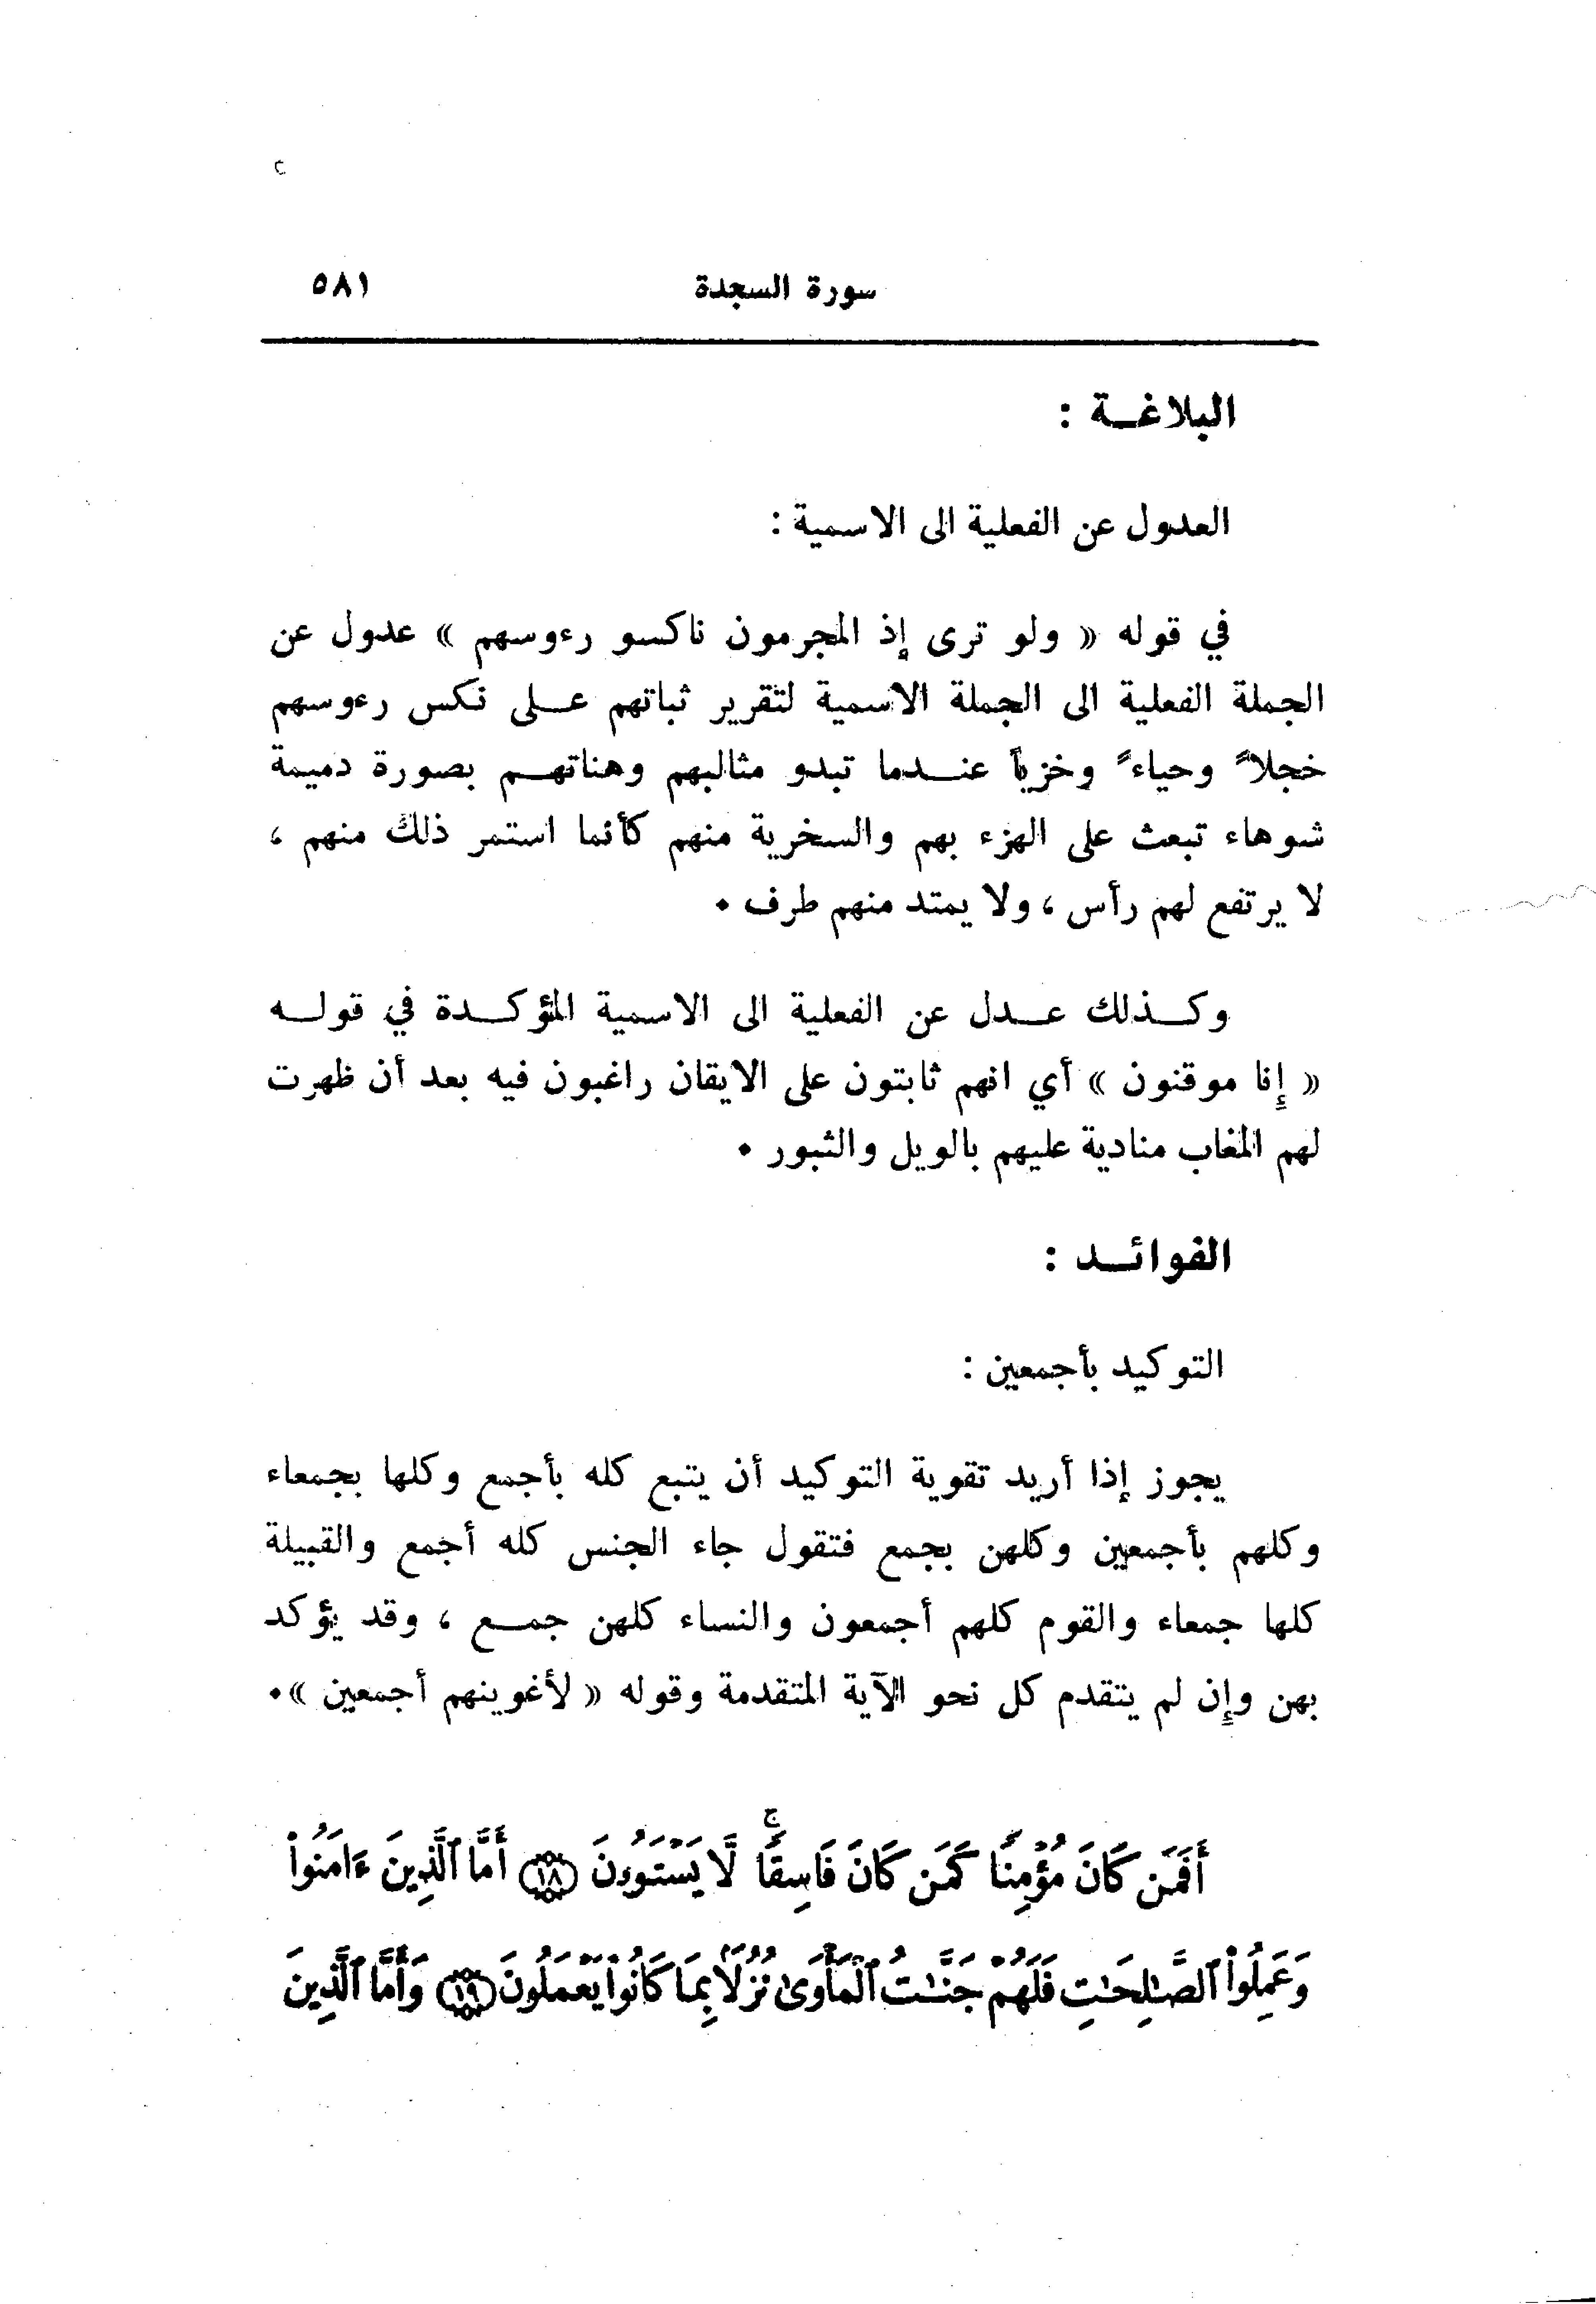 سورة السجدة ٥٨١
البلاغــة :
العدول عن الفعلية الى الاسمية :
في قوله « ولو ترى إذ المجرمون ناكسو رءوسهم » عدول عن
الجملة الفعلية الى الجملة الاسمية لتقرير ثباتهم عــلى نكس رءوسهم
خجلاً وحياءً وخزياً عنــدما تبدو مثالبهم وهناتهــم بصورة دميمة
شوهاء تبعث على الهزء بهم والسخرية منهم كأنما استمر ذلك منهم ،
لا يرتفع لهم رأس ، ولا يمتد منهم طرف .
وكــذلك عــدل عن الفعلية الى الاسمية المؤكــدة في قولــه
« إنا موقنون » أي انهم ثابتون على الايقان راغبون فيه بعد أن ظهرت
لهم المغاب منادية عليهم بالويل والثبور .
الفوائــد :
التوكيد بأجمعين :
يجوز إذا أريد تقوية التوكيد أن يتبع كله بأجمع وكلها بجمعاء
وكلهم بأجمعين وكلهن بجمع فتقول جاء الجنس كله أجمع والقبيلة
كلها جمعاء والقوم كلهم أجمعون والنساء كلهن جمــع ، وقد يؤكد
بهن وإن لم يتقدم كل نحو الآية المتقدمة وقوله « لأغوينهم أجمعين ».
أَفَمَن كَانَ مُؤْمِنًا كَمَن كَانَ فَاسِقًا ۚ لَّا يَسْتَوُۥنَ ﴿١٨﴾ أَمَّا ٱلَّذِينَ ءَامَنُوا۟
وَعَمِلُوا۟ ٱلصَّـٰلِحَـٰتِ فَلَهُمْ جَنَّـٰتُ ٱلْمَأْوَىٰ نُزُلًۢا بِمَا كَانُوا۟ يَعْمَلُونَ ﴿١٩﴾ وَأَمَّا ٱلَّذِينَ